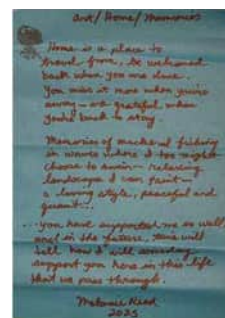 Art/Home/Memories
Home is a place to
travel from, be welcomed
back when you are done.
You miss it more when you're
away - are grateful when
you're back to stay.
Memories of mackerel fishing
in waves where I too might
choose to swim - relaxing
landscape I can paint -
a loving style, peaceful and
quaint...
...you have supported me so well
and in the future, time will
tell how I will someday
support you here in this life
that we pass through.
Melanie Reed
2025